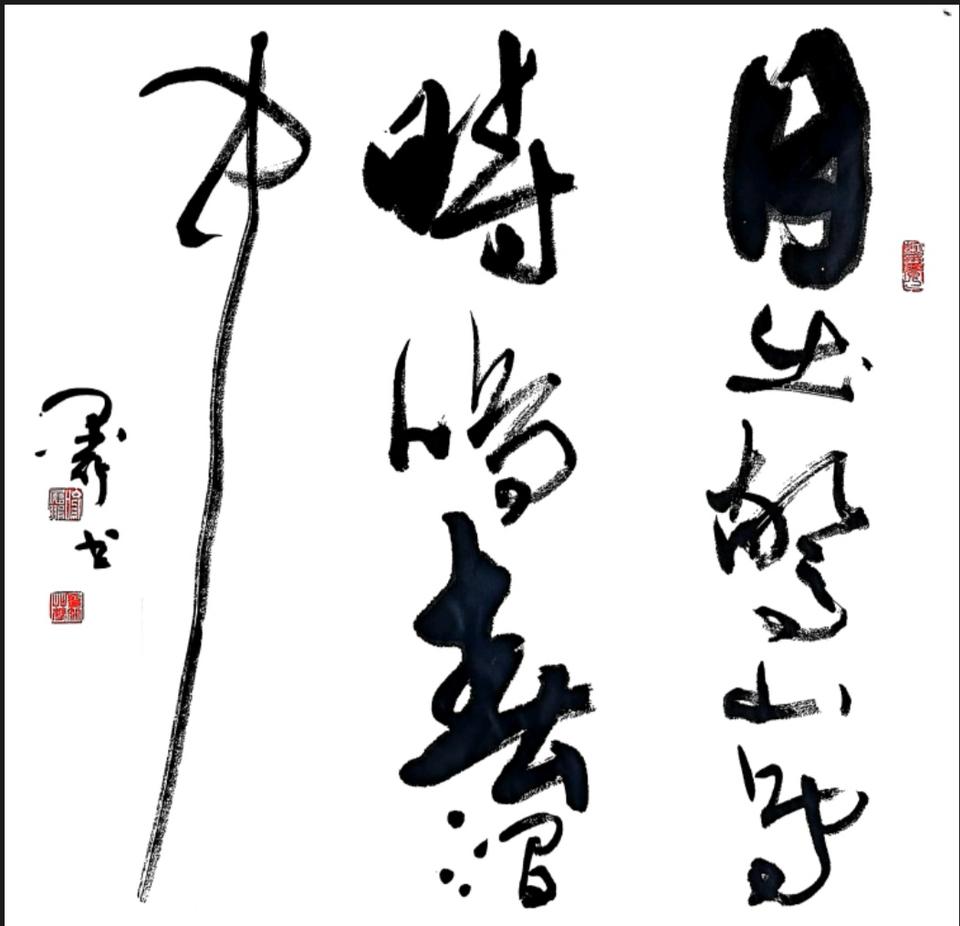 月出驚山鳥
時鳴春澗
中
書